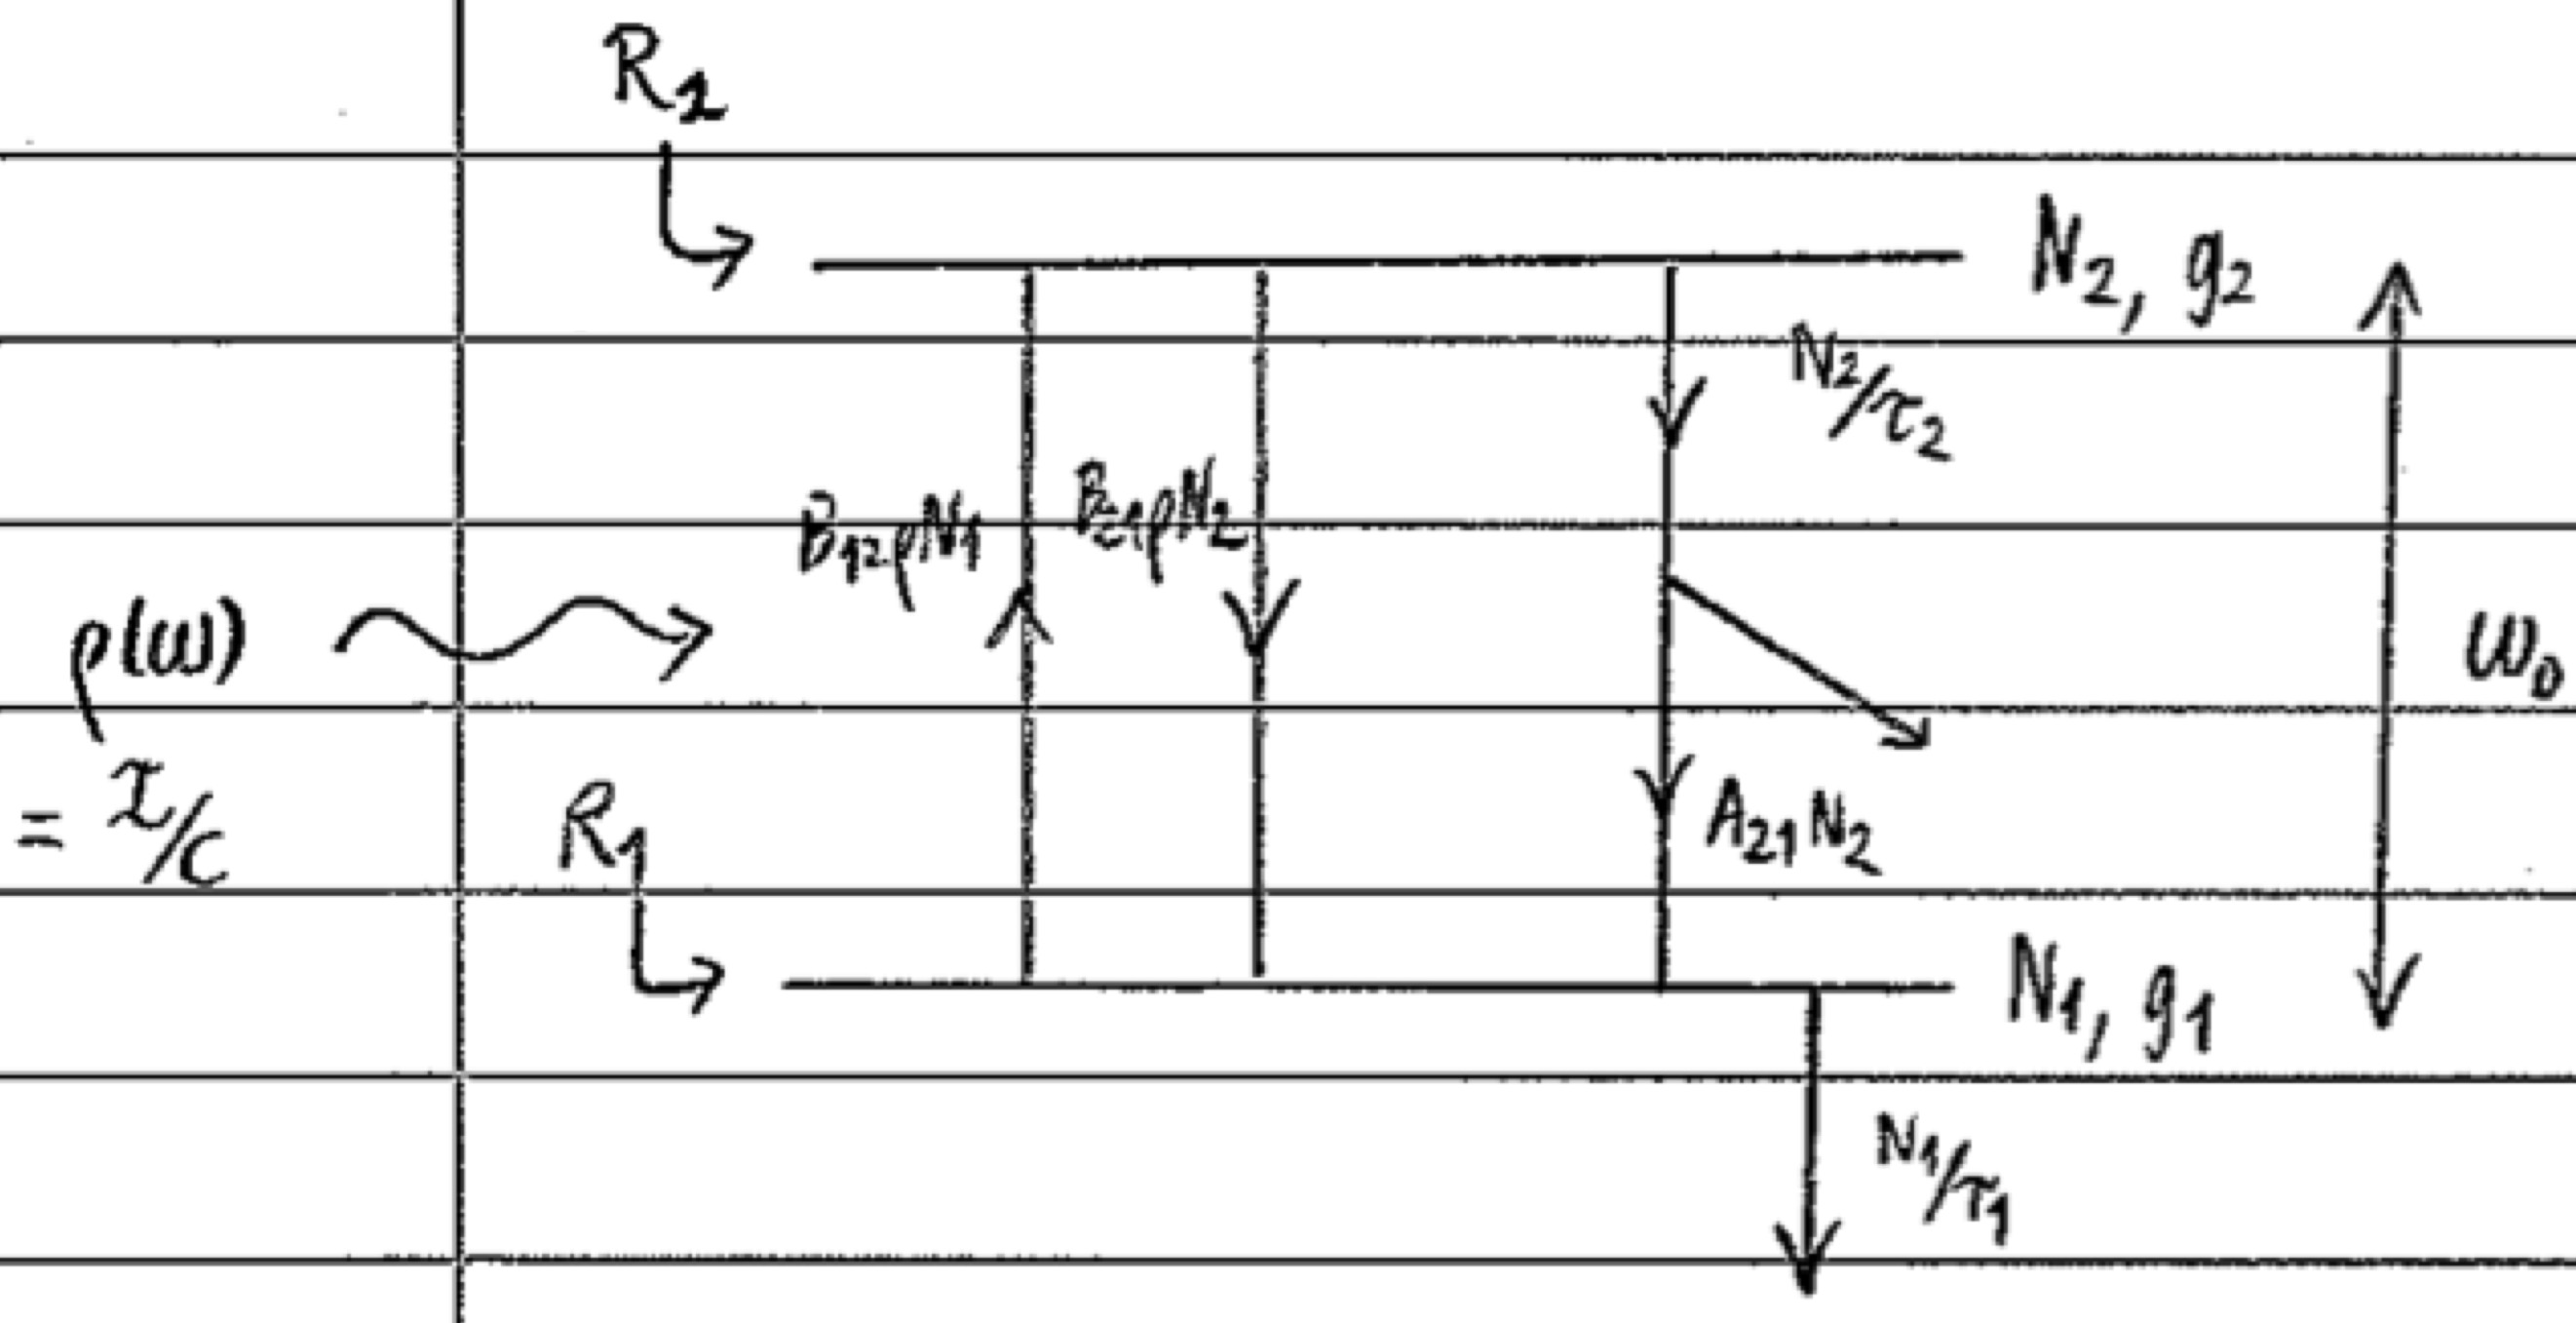 R2
N2, g2
N2/τ2
B12ρN1
B21ρN2
ρ(ω)
ω0
= I/c
R1
A21N2
N1, g1
N1/τ1